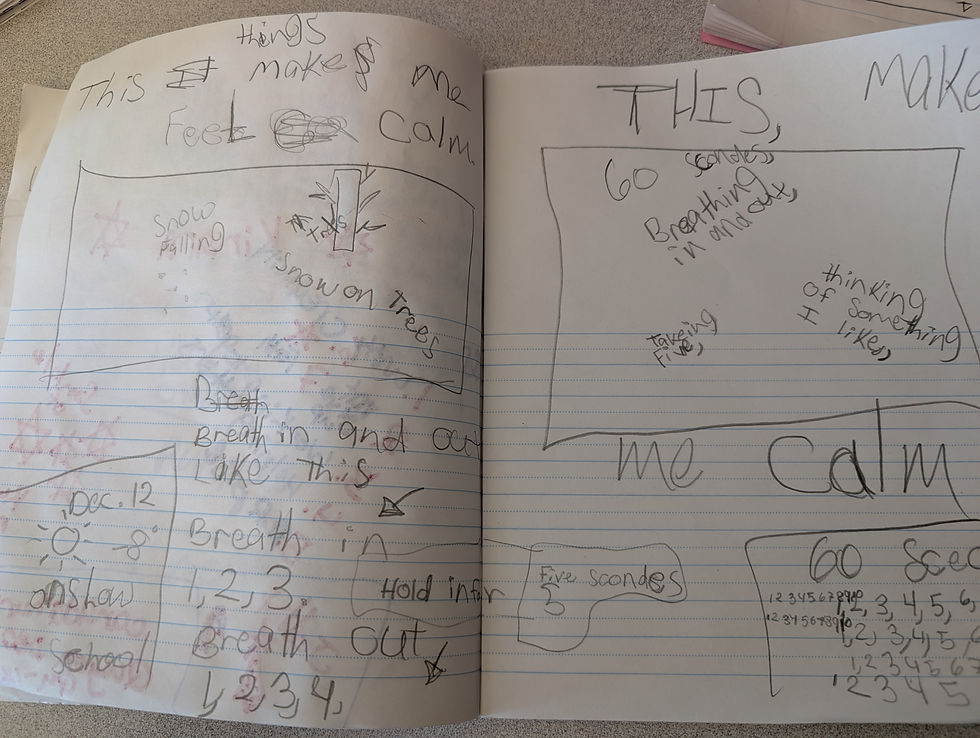 things
This makes me
Feel Calm
Snow
Falling
Snow on Trees
Breath
Breath in and out
Like This
Dec. 12
-8°
Breath in
1, 2, 3.
Hold in for
Five scondes
5
Breath out
1, 2, 3, 4,
school
THIS, Make
60 scondes,
Breathing
in and out,
thinking
Of Something
I likes,
takeing
Five,
me Calm
60 Scec
1 2 3 4 5 6 7 8 9 10 1, 2, 3, 4, 5, 6
1 2 3 4 5 6 7 8 9 10 1, 2, 3, 4, 5
1, 2 3 4 5 6
1 2 3 4 5